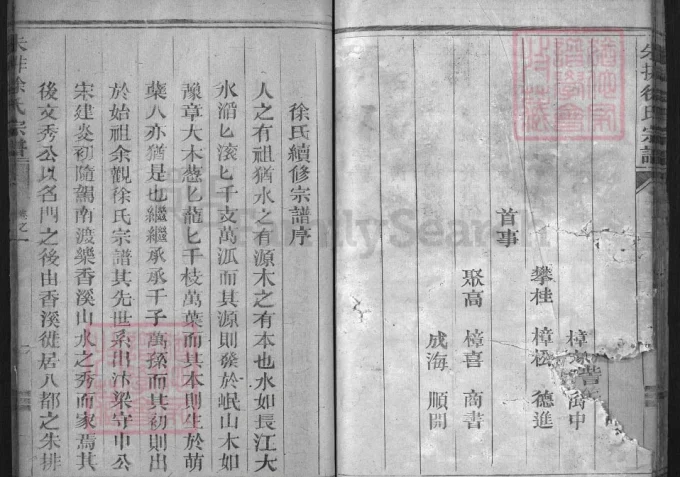 朱排徐氏宗譜
樟 禹中
攀桂 樟松 德進
首事
聚高 樟喜 商書
成海 順開
徐氏續修宗譜序
人之有祖猶水之有源木之有本也水如長江大
水滔匕滾匕千支萬派而其源則發於岷山木如
豫章大木葱匕蘢匕千枝萬葉而其本則生於萌
蘖人亦猶是也繼繼承承千子萬孫而其初則出
於始祖余觀徐氏宗譜其先世系出汴梁守中公
宋建炎初隨駕南渡樂香溪山水之秀而家焉其
後文秀公以名門之後由香溪徙居八都之朱排
朱排徐氏宗譜
FamilySearch